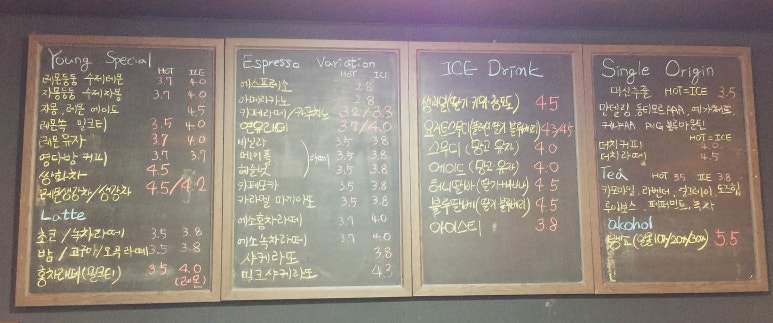 Young Special
HOT ICE
레몬동동 수제레몬 3.7 4.0
자몽동동 수제자몽 3.7 4.0
자몽, 레몬 에이드 4.5
레몬쏙 밀크티 3.5 4.0
레몬 유자 3.7 4.0
영다방 커피 3.7 3.7
쌍화차 4.5
레몬생강차/생강차 4.5/4.2
Latte
초코/녹차라떼 3.5 3.8
밤/고구마/오곡라떼 3.5 3.8
홍차라떼(밀크티) 3.5 4.0
(레몬)
Espresso Variation
HOT ICE
에스프레소 2.8
아메리카노 2.8
카페라떼/카푸치노 3.2/3.3
연유라떼 3.7/4.0
바닐라 3.5 3.8
메이플 라떼 3.5 3.8
헤즐넛 3.5 3.8
카페모카 3.5 3.8
카라멜 마끼아또 3.5 3.8
에소홍차라떼 3.7 4.0
에소녹차라떼 3.7 4.0
샤케라또 3.8
밀크샤케라또 4.3
ICE Drink
생과일(딸기 키위 청포도) 4.5
요거트스무디(플레인 딸기 블루베리) 4.3/4.5
스무디 (망고 유자) 4.0
에이드 (망고 유자) 4.0
허니딸바 (딸기 바나나) 4.5
블루딸베 (딸기 블루베리) 4.5
아이스티 3.8
Single Origin
머신추출 HOT=ICE 3.5
만델링, 동티모르AAA, 예가체프,
케냐AA PNG 블루마운틴
HOT=ICE
더치커피 4.0
더치라떼 4.5
Tea HOT 3.5 ICE 3.8
카모마일, 라벤더, 얼그레이, 로즈힙
루이보스 페퍼민트, 유자
alkohol
5.5